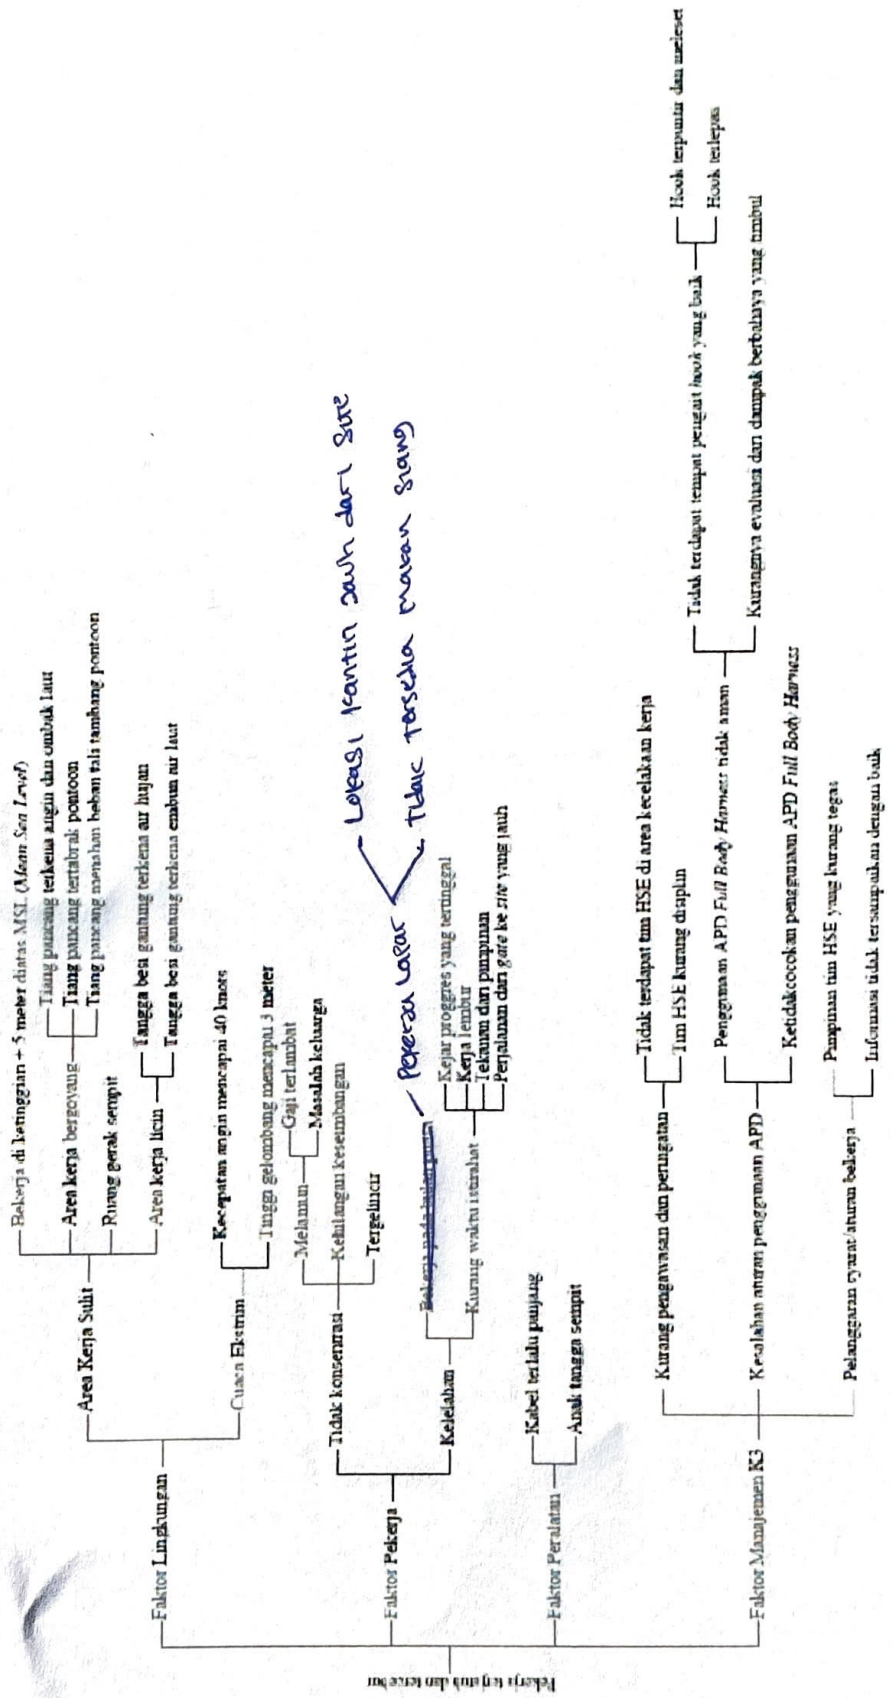 Pekerja terjatuh dan tercebur
Faktor Lingkungan
Area Kerja Sulit
Bekerja di ketinggian + 5 meter diatas MSL (Mean Sea Level)
Area kerja bergoyang
Tiang pancang terkena angin dan ombak laut
Tiang pancang tertabrak pontoon
Tiang pancang menahan beban tali tambang pontoon
Ruang gerak sempit
Area kerja licin
Tangga besi gantung terkena air hujan
Tangga besi gantung terkena embun air laut
Cuaca Ekstrim
Kecepatan angin mencapai 40 knots
Tinggi gelombang mencapai 3 meter
Faktor Pekerja
Tidak konsentrasi
Melamun
Gaji terlambat
Masalah keluarga
Kehilangan keseimbangan
Tergelincir
Kelelahan
Bekerja pada bulan puasa
Pekerja Lapar
Lokasi Kantin Jauh dari Site
Tidak Tersedia Makan Siang
Kurang waktu istirahat
Kejar proggres yang tertinggal
Kerja lembur
Tekanan dari pimpinan
Perjalanan dari gate ke site yang jauh
Faktor Peralatan
Kabel terlalu panjang
Anak tangga sempit
Faktor Manajemen K3
Kurang pengawasan dan peringatan
Tidak terdapat tim HSE di area kecelakaan kerja
Tim HSE kurang disiplin
Kesalahan aturan penggunaan APD
Penggunaan APD Full Body Harness tidak aman
Tidak terdapat tempat pengait hook yang baik
Hook terpuntir dan meleset
Hook terlepas
Kurangnya evaluasi dan dampak berbahaya yang timbul
Ketidakcocokan penggunaan APD Full Body Harness
Pelanggaran syarat/aturan bekerja
Pimpinan tim HSE yang kurang tegas
Informasi tidak tersampaikan dengan baik